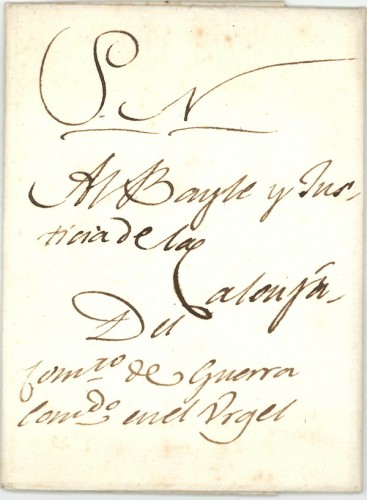 S. N
Al Bayle y Jus-
ticia de la
Calonja
Del
Comro de Guerra
Comdo en el Vrgel